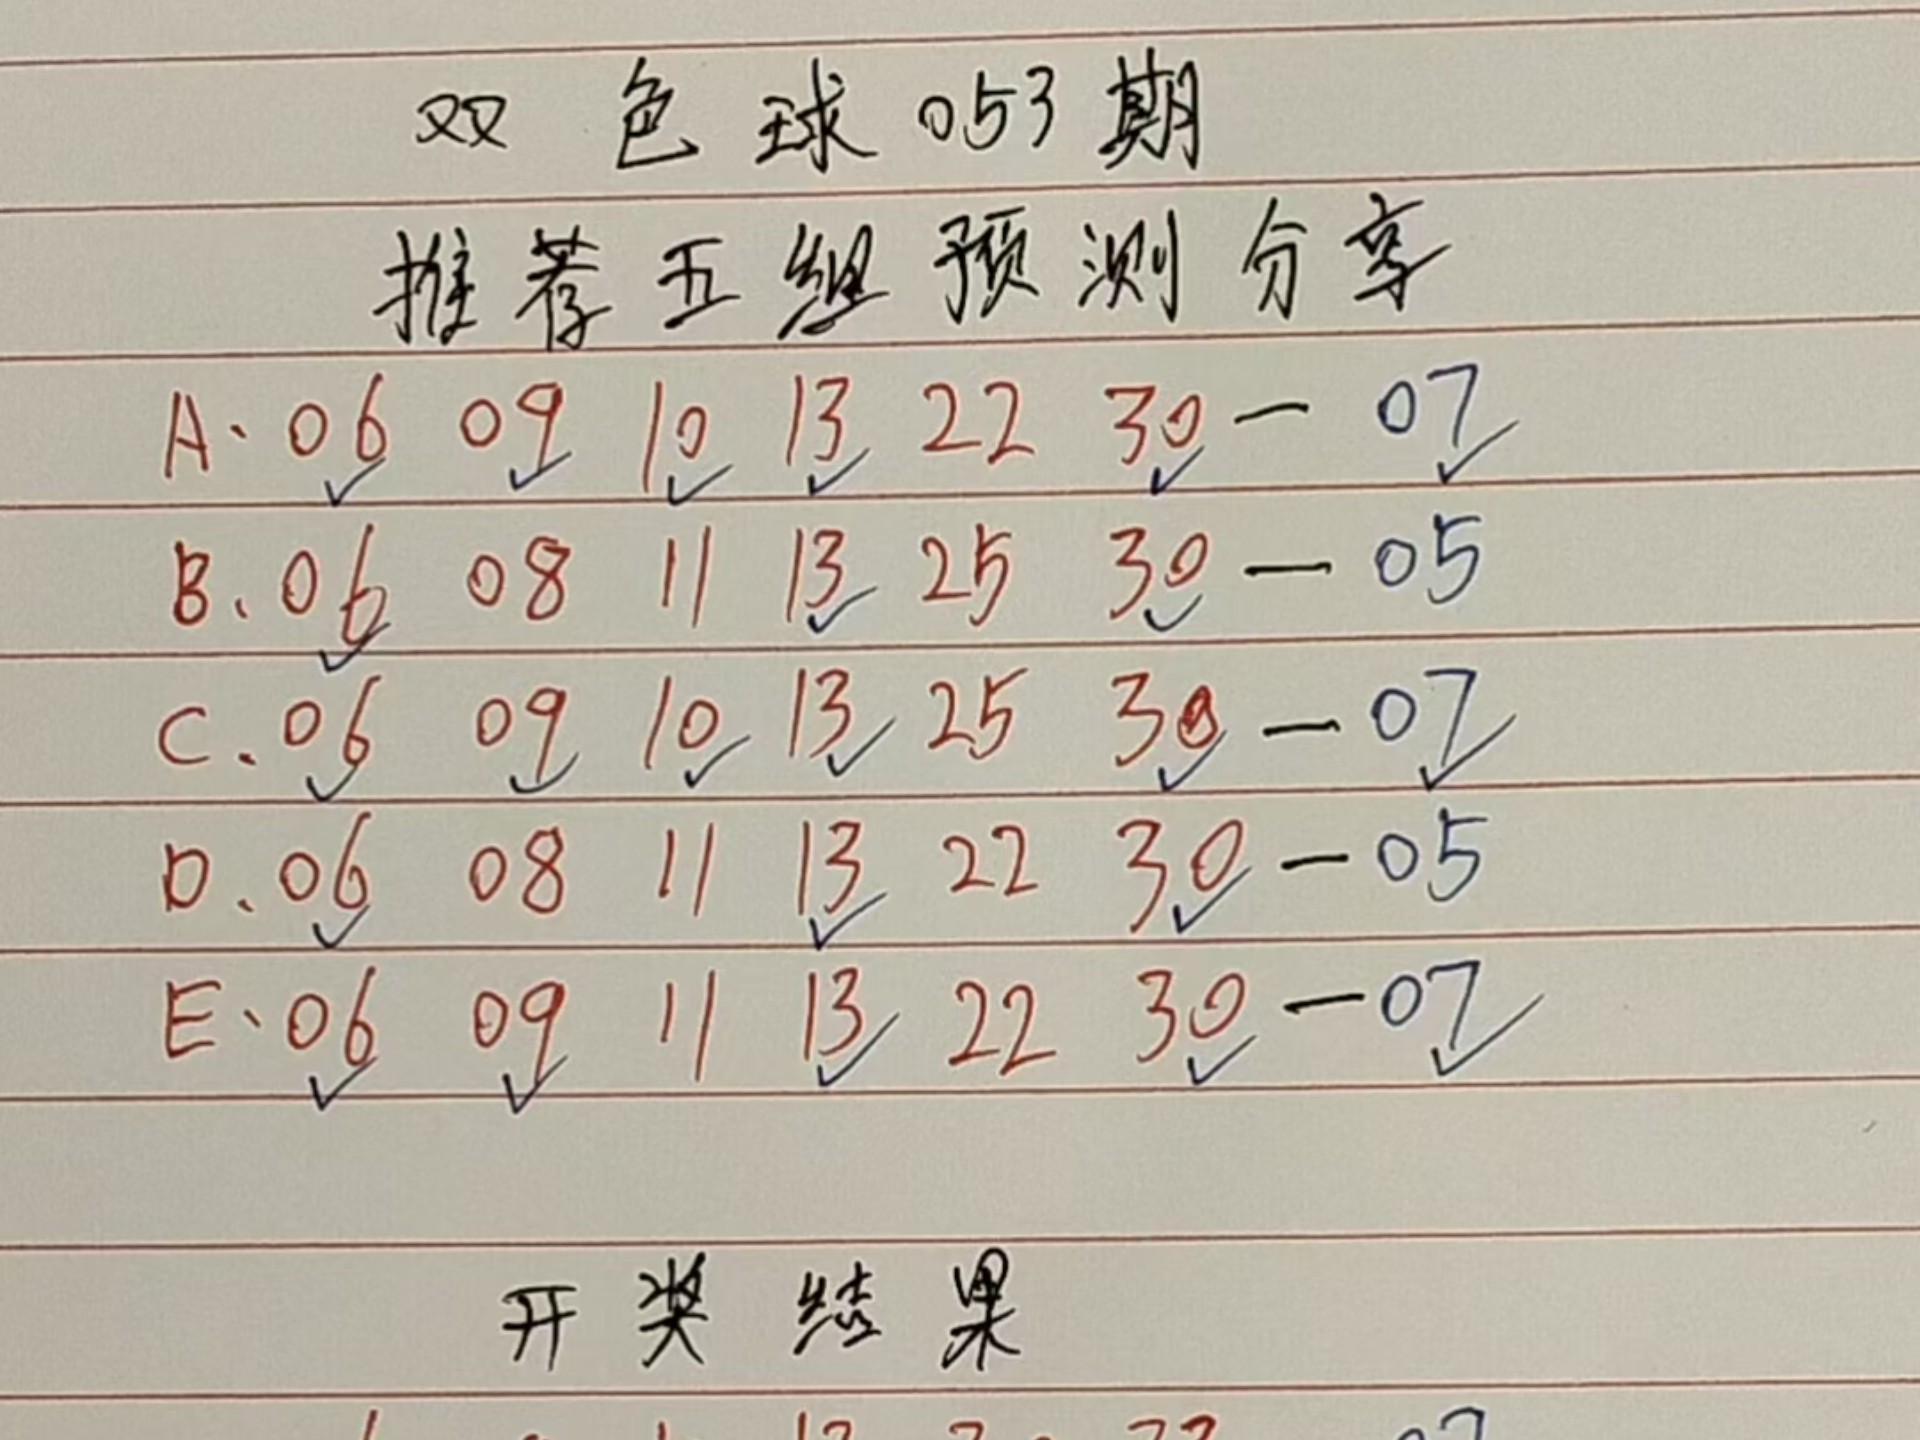 双色球053期
推荐五组预测分享
A. 06 09 10 13 22 30 — 07
B. 06 08 11 13 25 30 — 05
C. 06 09 10 13 25 30 — 07
D. 06 08 11 13 22 30 — 05
E. 06 09 11 13 22 30 — 07
开奖结果
13 07